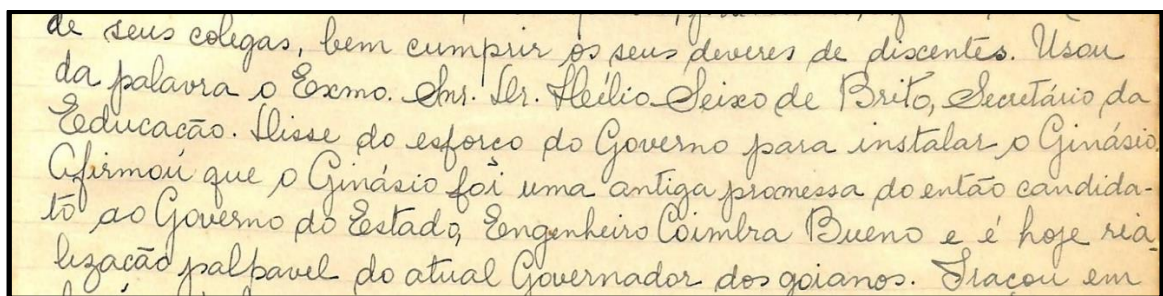 de seus colegas, bem cumprir os seus deveres de discentes. Usou
da palavra o Exmo. Snr. Dr. Hélio Seixo de Brito, Secretário da
Educacão. Disse do esforco do Governo para instalar o Ginásio.
Afirmou que o Ginásio foi uma antiga promessa do então candida-
to ao Governo do Estado, Engenheiro Coimbra Bueno e é hoje rea-
lização palpavel do atual Governador dos goianos. Traçou em